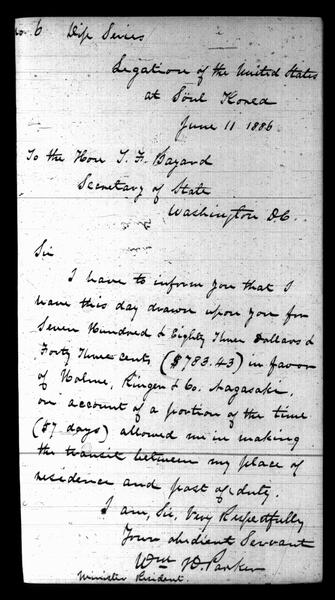 No. 6 Dip Series
Legation of the United States
at Söul Korea
June 11 1886.
To the Hon T. F. Bayard
Secretary of State
Washington D.C.
Sir
I have to inform you that I
have this day drawn upon you for
Seven Hundred & Eighty Three Dollars &
Forty Three cents ($783.43) in favor
of Holme, Ringer & Co. Nagasaki,
on account of a portion of the time
(57 days) allowed me in making
the transit between my place of
residence and post of duty.
I am, Sir, Very Respectfully
Your obedient Servant
Wm H. Parker
Minister Resident.